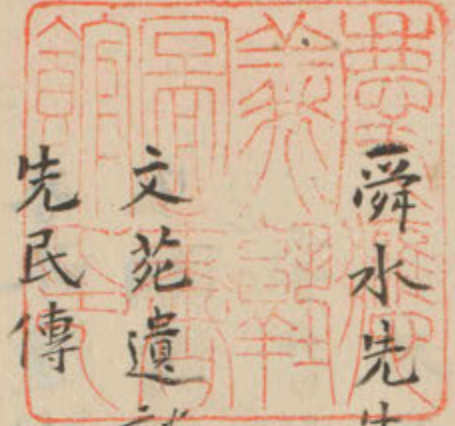 舜水先
文苑遺
先民傳
義
圖書
館印